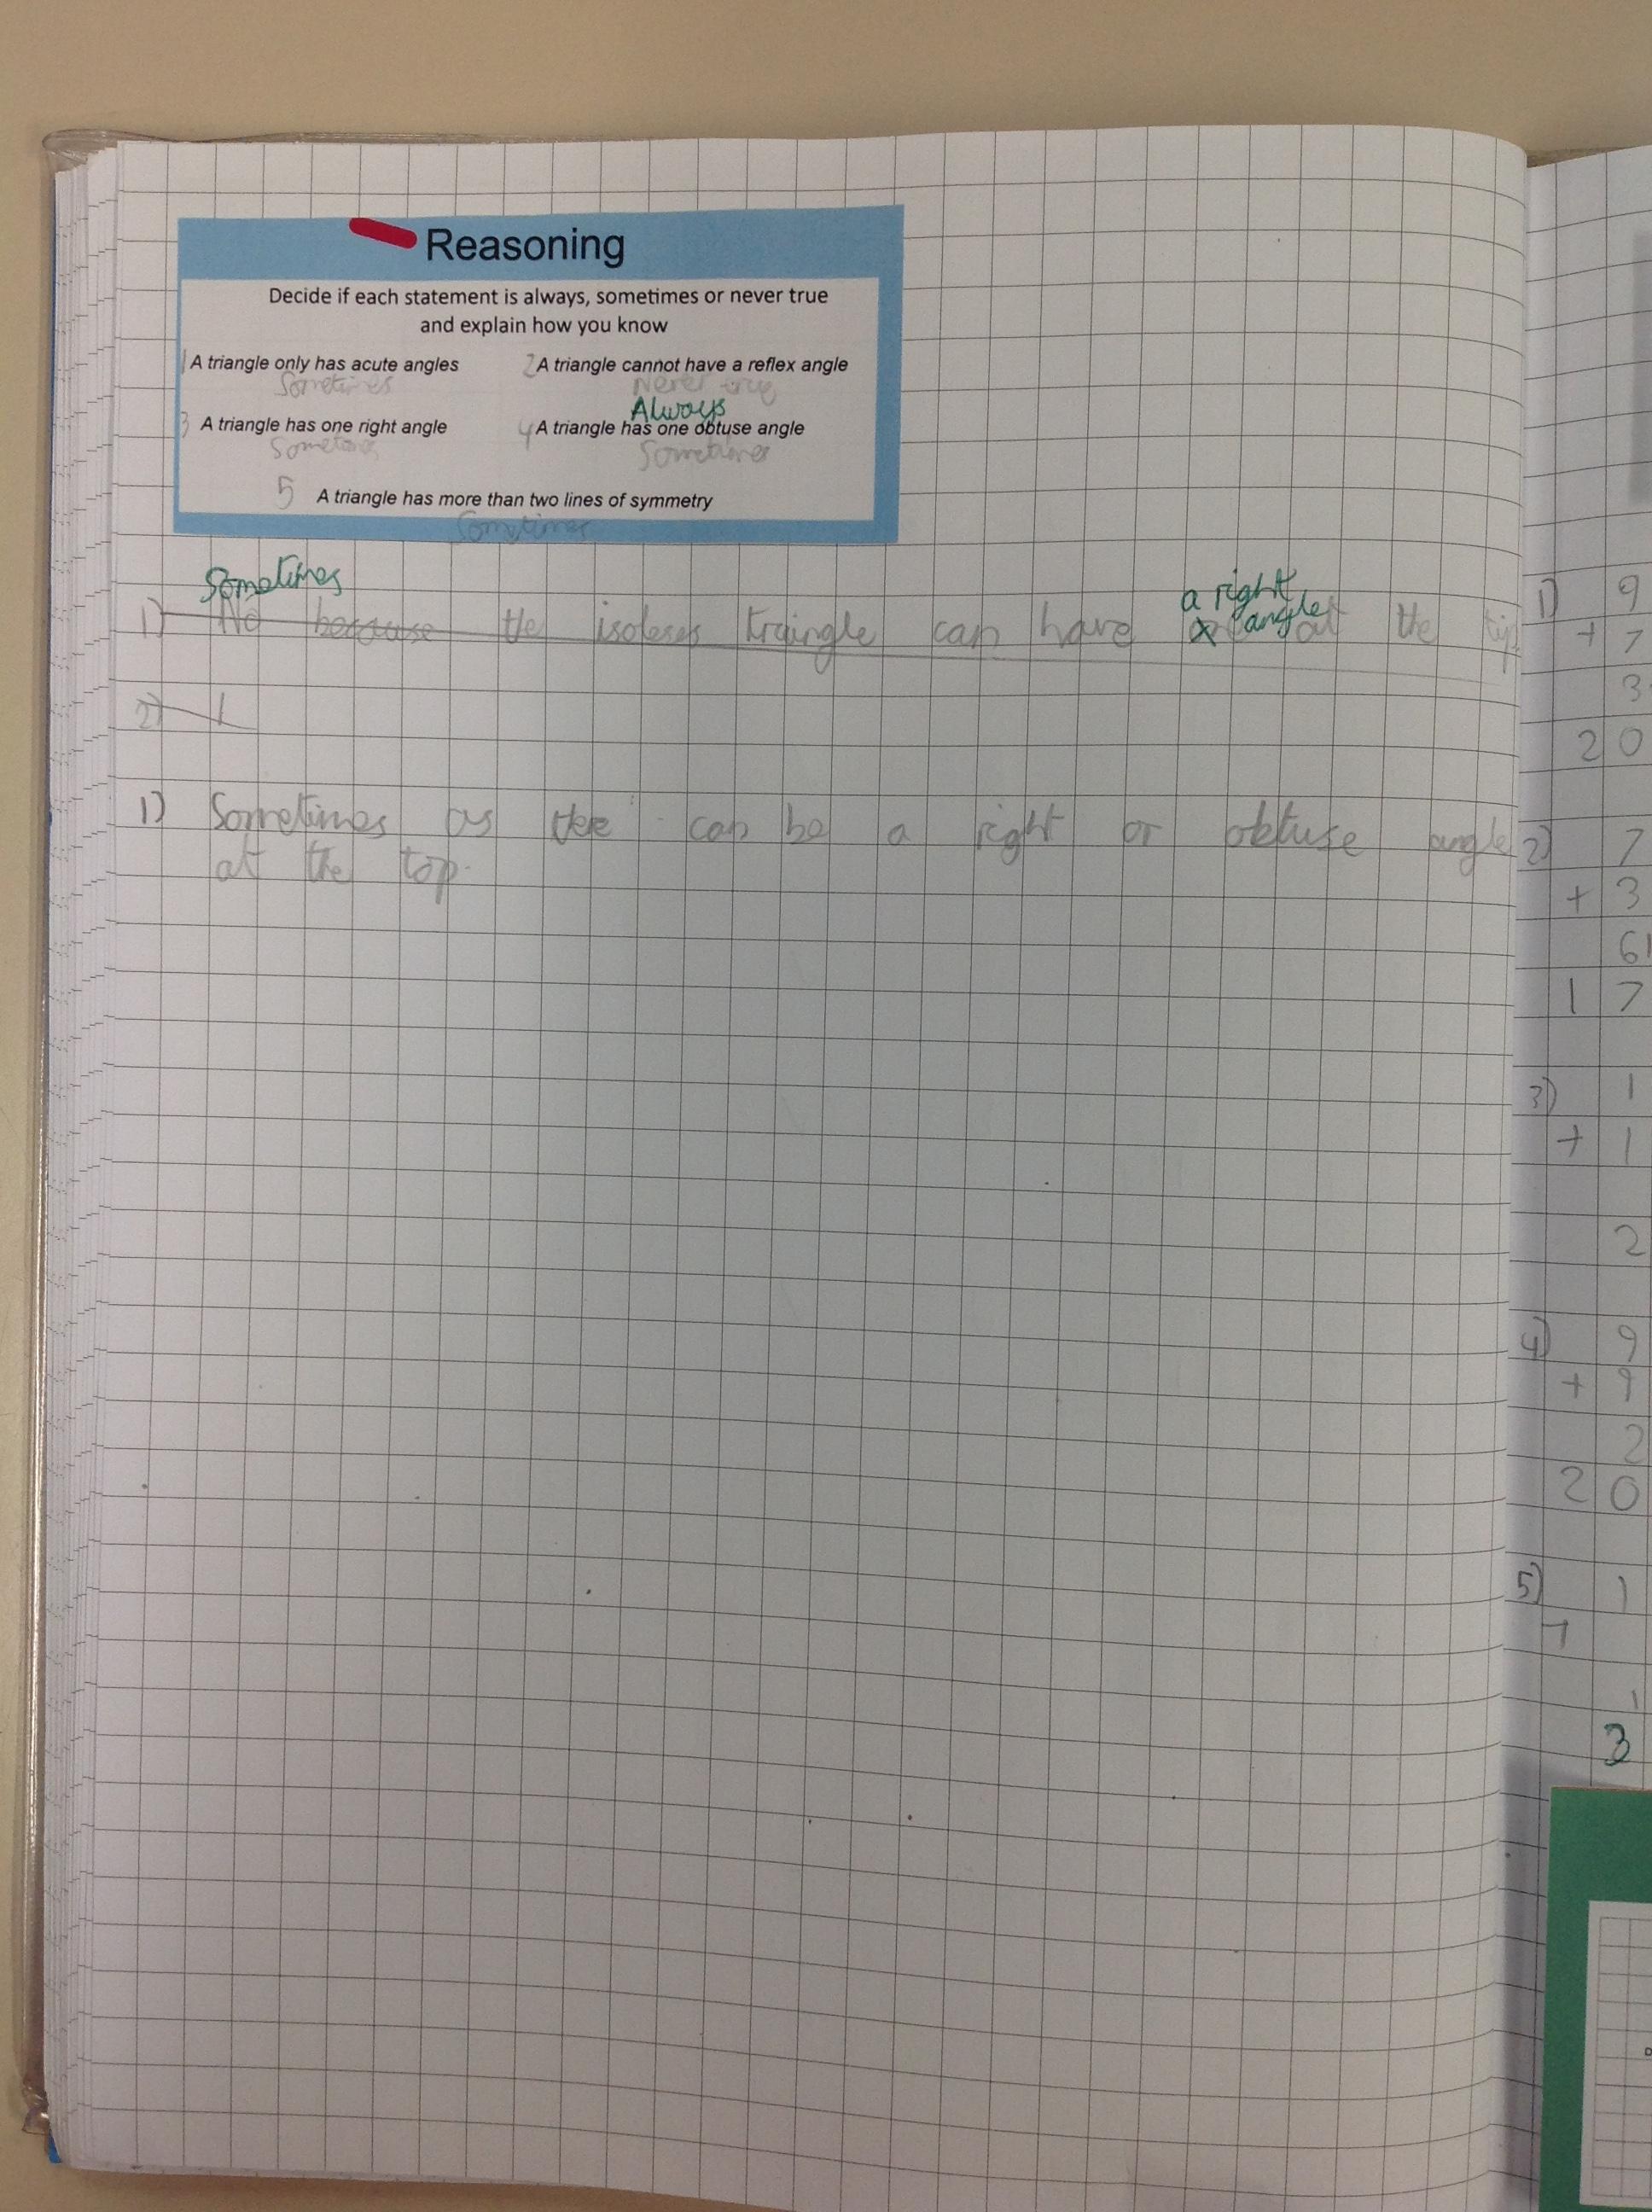 Reasoning
Decide if each statement is always, sometimes or never true
and explain how you know
1 A triangle only has acute angles
Sometimes
2 A triangle cannot have a reflex angle
Never true
Always
3 A triangle has one right angle
Sometimes
4 A triangle has one obtuse angle
Sometimes
5 A triangle has more than two lines of symmetry
Sometimes
Sometimes
a right
angle
1) No because the isoleses traingle can have at the tip.
2)
1) Sometimes as there can be a right or obtuse angle
at the top.
1) 9
+ 7
3
2 0
2) 7
+ 3
6 1
1 7
3) 1
+ 1
2
4) 9
+ 9
2
2 0
5) 1
1
3